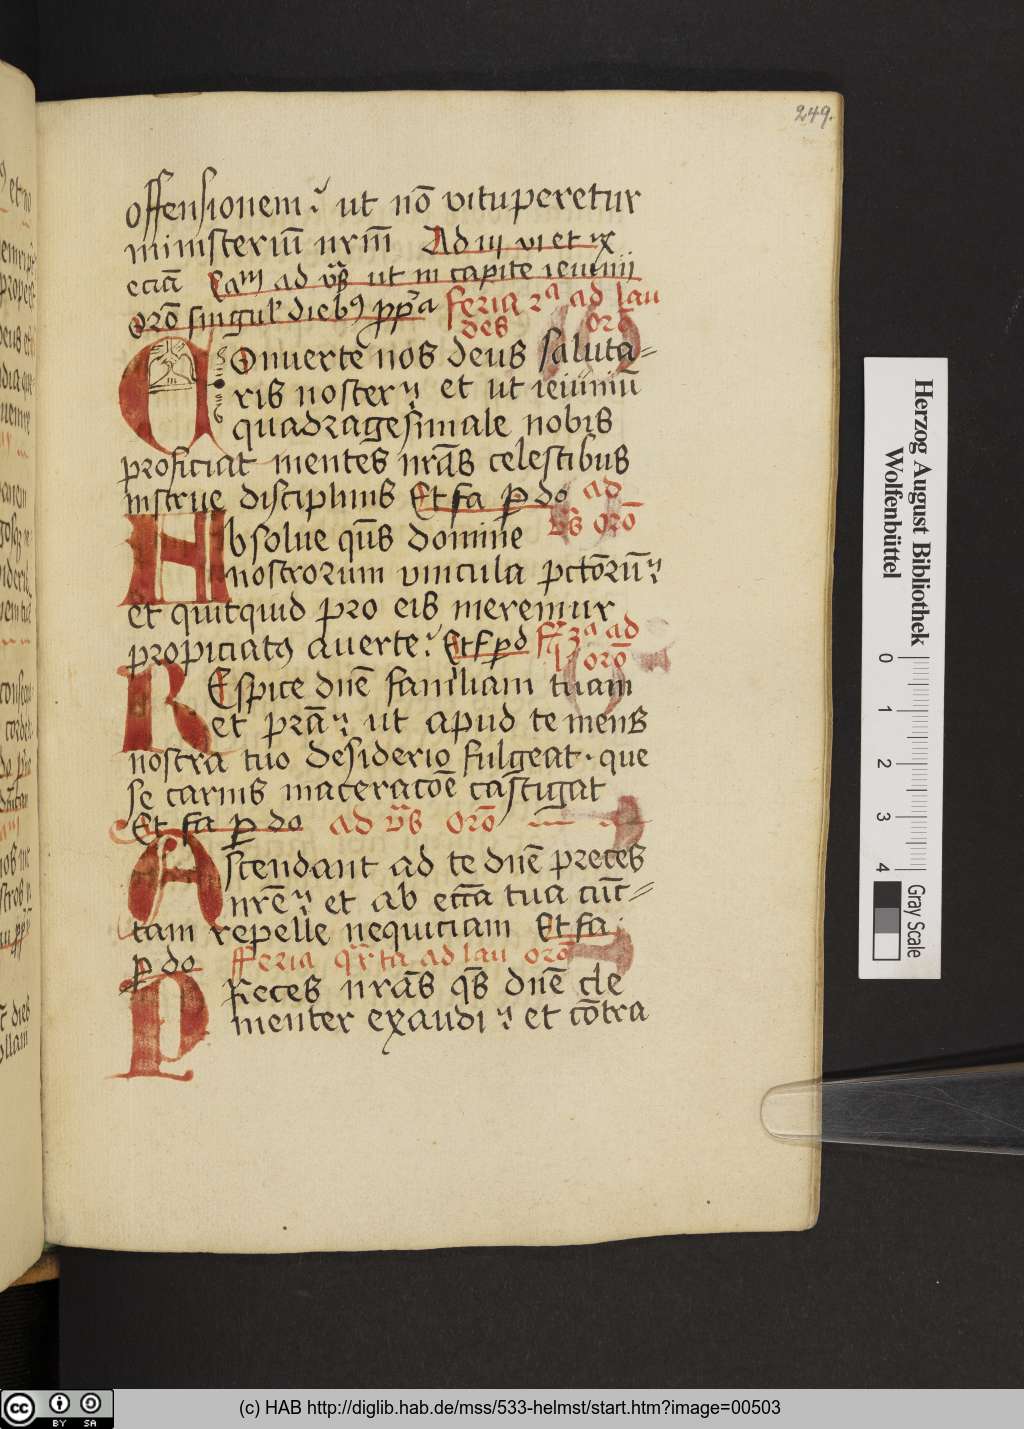 249.
offensionem ut nō vituperetur
ministeriū nrm̄ Ad iij vi et ix
eciā ad ut in capite ieiunij
orō singul' dieb9 ꝓpa feria 2a ad lau
des orō
COnuerte nos deus saluta=
ris noster et ut ieiuniū
quadragesimale nobis
proficiat mentes nrās celestibus
instrue disciplinis Et fa ꝑ do ad
vs orō
Absolue qs̄ domine
nostrorum vincula pctōrū
et quitquid pro eis meremur
propiciat9 auerte Et f ꝑ d fr 3a ad
l orō
REspice dn̄e familiam tuam
et prā ut apud te mens
nostra tuo desiderio fulgeat · que
se carnis maceracōe castigat
Et fa ꝑ do ad vs orō
Ascendant ad te dn̄e preces
nrē et ab eccā tua cūc=
tam repelle nequiciam Et fa
ꝑ do Feria qrta ad lau orō
PReces nrās qs̄ dn̄e cle
menter exaudi et cōtra
Herzog August Bibliothek
Wolfenbüttel
0 1 2 3 4
Gray Scale
cc BY SA
(c) HAB http://diglib.hab.de/mss/533-helmst/start.htm?image=00503